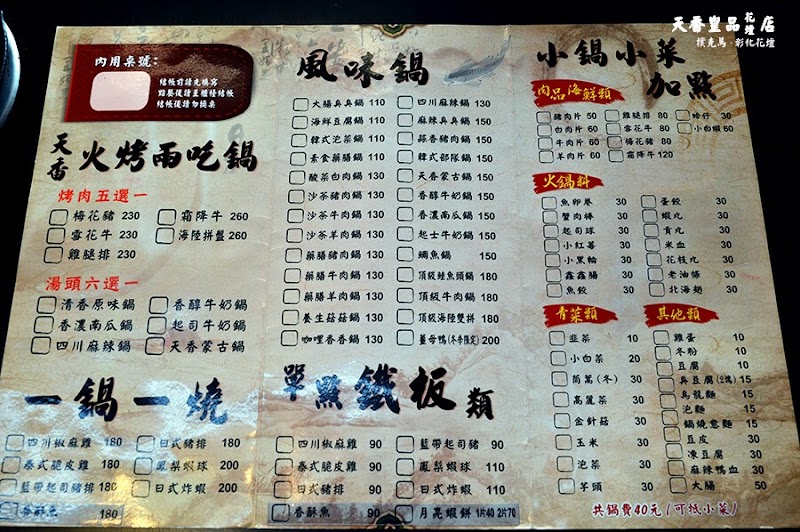 天香豐品花壇店
撲克馬．彰化花壇
內用桌號：
結帳前請先填寫
點餐後請至櫃檯結帳
結帳後請勿換桌
天香 火烤兩吃鍋
烤肉五選一
梅花豬 230
霜降牛 260
雪花牛 230
海陸拼盤 260
雞腿排 230
湯頭六選一
清香原味鍋
香醇牛奶鍋
香濃南瓜鍋
起司牛奶鍋
四川麻辣鍋
天香蒙古鍋
一鍋一燒
四川椒麻雞 180
日式豬排 180
泰式脆皮雞 180
鳳梨蝦球 200
藍帶起司豬 180
日式炸蝦 200
香酥魚 180
風味鍋
大腸臭臭鍋 110
海鮮豆腐鍋 110
韓式泡菜鍋 110
素食藥膳鍋 110
酸菜白肉鍋 110
沙茶豬肉鍋 130
沙茶牛肉鍋 130
沙茶羊肉鍋 130
藥膳豬肉鍋 130
藥膳牛肉鍋 130
藥膳羊肉鍋 130
養生菇菇鍋 130
咖哩香香鍋 130
四川麻辣鍋 130
麻辣臭臭鍋 150
蒜香豬肉鍋 150
韓式部隊鍋 150
天香蒙古鍋 150
香醇牛奶鍋 150
香濃南瓜鍋 150
起士牛奶鍋 150
鯛魚鍋 150
頂級鮭魚頭鍋 180
頂級牛肉鍋 180
頂級海陸雙拼 180
薑母鴨(冬季限定) 200
單點鐵板類
四川椒麻雞 90
藍帶起司豬 90
泰式脆皮雞 90
鳳梨蝦球 110
日式豬排 90
日式炸蝦 110
香酥魚 90
月亮蝦餅 1片40 2片70
小鍋小菜加點
肉品海鮮類
豬肉片 50
雞腿排 80
蛤仔 30
白肉片 60
雪花牛 80
小白蝦 60
牛肉片 60
梅花豬 80
羊肉片 60
霜降牛 120
火鍋料
魚卵卷 30
蛋餃 30
蟹肉棒 30
蝦丸 30
起司球 30
貢丸 30
小紅莓 30
米血 30
小黑輪 30
花枝丸 30
鑫鑫腸 30
老油條 30
魚餃 30
北海翅 30
青菜類
韭菜 10
小白菜 20
茼蒿(冬) 30
高麗菜 30
金針菇 30
玉米 30
泡菜 30
芋頭 30
其他類
雞蛋 10
冬粉 10
豆腐 10
臭豆腐(2塊) 15
烏龍麵 15
泡麵 15
鍋燒意麵 15
豆皮 30
凍豆腐 30
麻辣鴨血 30
大腸 50
共鍋費40元（可抵小菜）